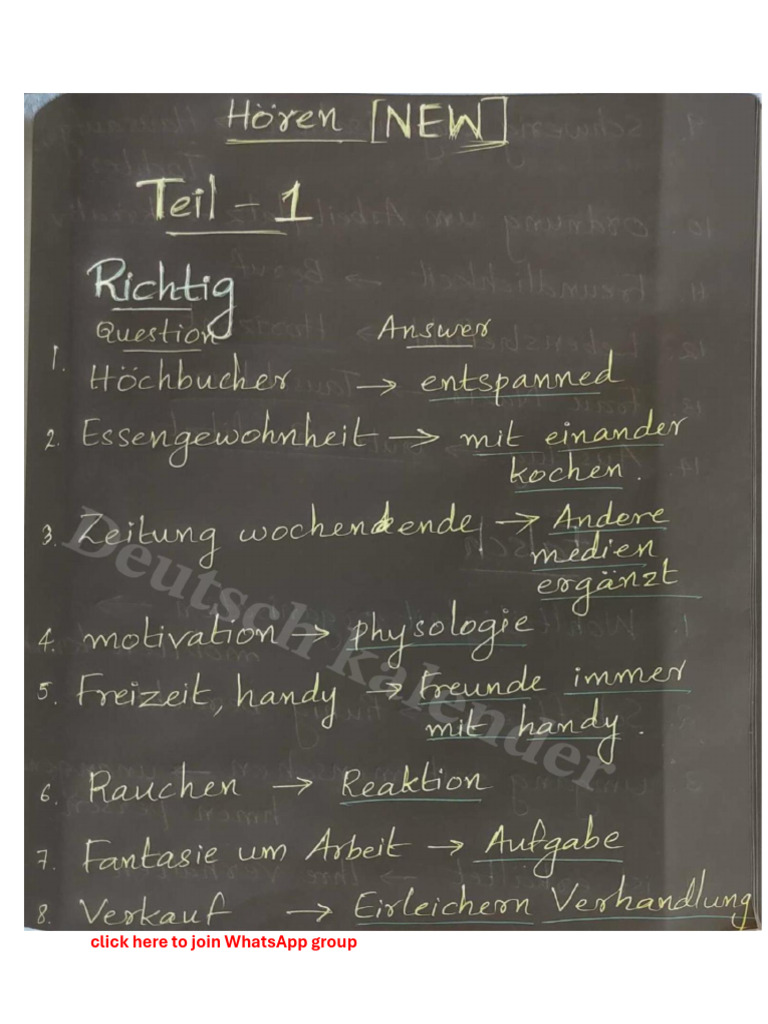 Hören [NEW]
Teil - 1
Richtig
Question Answer
1. Höchbucher → entspanned
2. Essengewohnheit → mit einander
kochen.
3. Zeitung wochendende → Andere
medien
ergänzt
4. motivation → physologie
5. Freizeit, handy → Freunde immer
mit handy.
6. Rauchen → Reaktion
7. Fantasie um Arbeit → Aufgabe
8. Verkauf → Eirleichern Verhandlung
Deutsch kalender
click here to join WhatsApp group